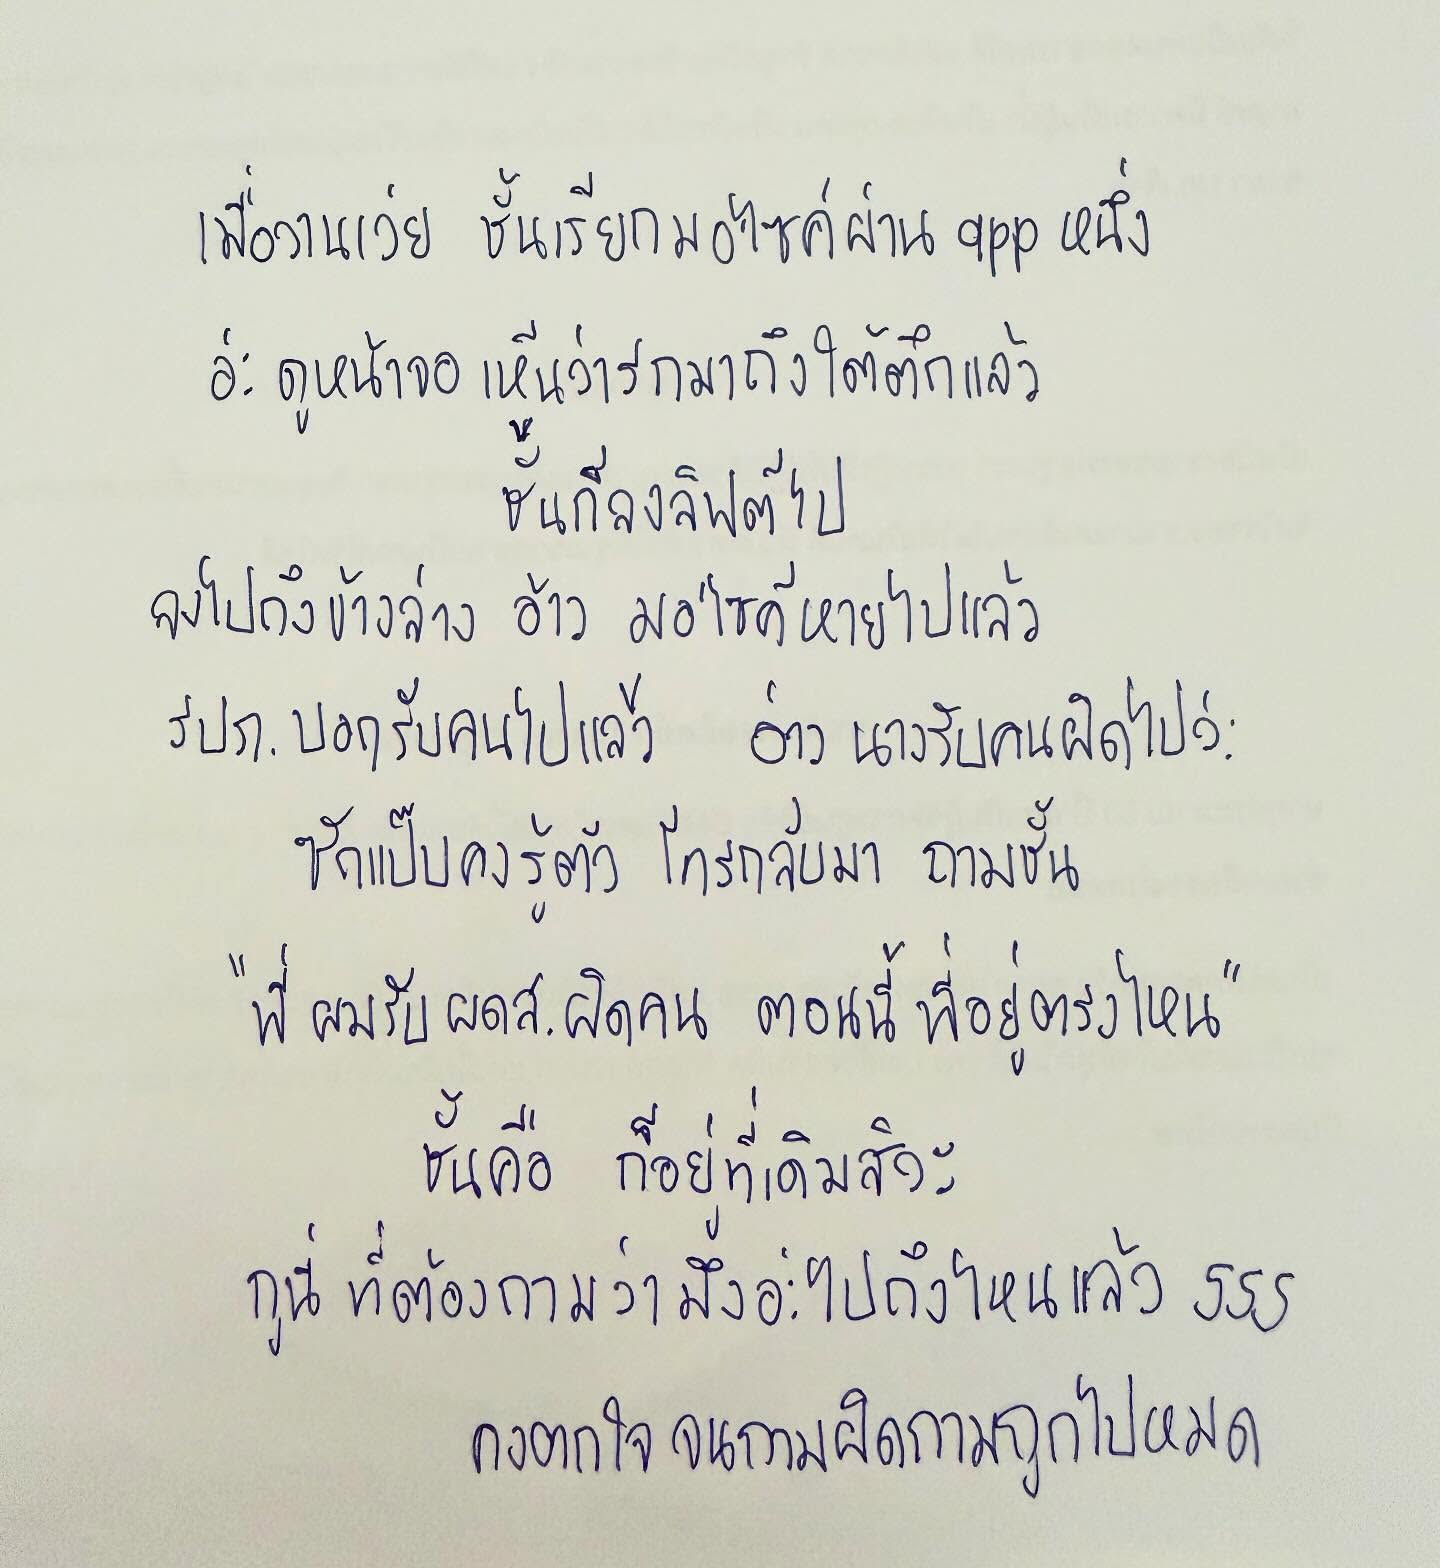 เมื่อวานเว่ย ชั้นเรียกมอ'ไซค์ผ่าน app หนึ่ง
อ่ะ ดูหน้าจอ เห็นว่ารถมาถึงใต้ตึกแล้ว
ชั้นก็ลงลิฟต์ไป
ลงไปถึงข้างล่าง อ้าว มอ'ไซค์หายไปแล้ว
รปภ. บอกรับคนไปแล้ว อ่าว นางรับคนผิดไปว่ะ
ซักแป๊บคงรู้ตัว โทรกลับมา ถามชั้น
"พี่ ผมรับ ผดส. ผิดคน ตอนนี้ พี่อยู่ตรงไหน"
ชั้นคือ ก็อยู่ที่เดิมสิวะ
กูนี่ ที่ต้องถามว่า มึงอ่ะไปถึงไหนแล้ว 555
คงตกใจ จนถามผิดถามถูกไปหมด